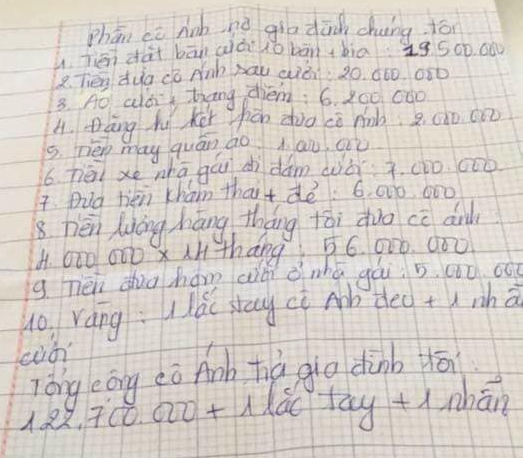 Phần cô Ánh nợ gia đình chúng tôi
1. Tiền đặt bàn cưới 10 bàn + bia : 19 500.000
2. Tiền đưa cô Ánh sau cưới : 20.000.000
3. Áo cưới + trang điểm : 6.200.000
4. Đăng kí kết hôn đưa cô Ánh : 2.000.000
5. Tiền may quần áo : 1.000.000
6. Tiền xe nhà gái đi đám cưới : 7.000.000
7. Đưa tiền khám thai + đẻ : 6.000.000
8. Tiền lương hàng tháng tôi đưa cô ánh :
4.000 000 x 14 tháng : 56.000.000
9. Tiền đưa hôm cưới ở nhà gái : 5.000.000
10. Vàng : 1 lắc tay cô Ánh đeo + 1 nhẫ
cưới
Tổng cộng cô Ánh trả gia đình tôi :
122.700.000 + 1 lắc tay + 1 nhẫn